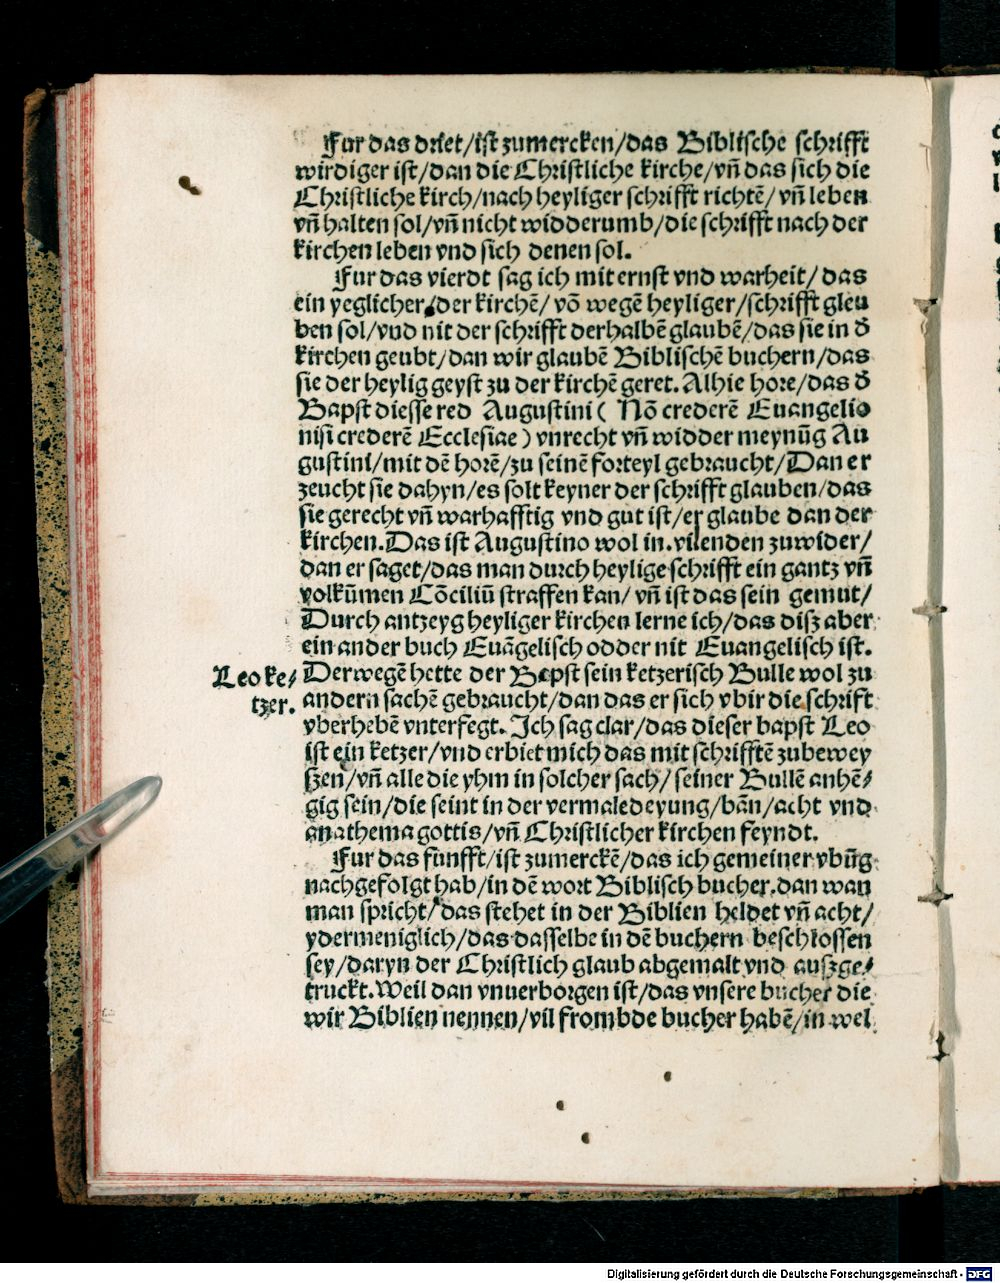 Fur das driet/ist zumercken/das Biblische schrifft
wirdiger ist/dan die Christliche kirche/vn̄ das sich die
Christliche kirch/nach heyliger schrifft richtē/vn̄ leben
vn̄ halten sol/vn̄ nicht widderumb/die schrifft nach der
kirchen leben vnd sich denen sol.
Fur das vierdt sag ich mit ernst vnd warheit/das
ein yeglicher/der kirchē/vō wegē heyliger/schrifft gleu
ben sol/vnd nit der schrifft derhalbē glaubē/das sie in d̄
kirchen geubt/dan wir glaubē Biblischē buchern/das
sie der heylig geyst zu der kirchē geret. Alhie hore/das d̄
Bapst diesse red Augustini ( Nō crederē Euangelio
nisi crederē Ecclesiae ) vnrecht vn̄ widder meynūg Au
gustini/mit dē horē/zu seinē forteyl gebraucht/Dan er
zeucht sie dahyn/es solt keyner der schrifft glauben/das
sie gerecht vn̄ warhafftig vnd gut ist/er glaube dan der
kirchen. Das ist Augustino wol in .vi. enden zuwider/
dan er saget/das man durch heylige schrifft ein gantz vn̄
volkūmen Cōciliū straffen kan/vn̄ ist das sein gemut/
Durch antzeyg heyliger kirchen lerne ich/das disz aber
ein ander buch Euāgelisch odder nit Euangelisch ist.
Leo ke/
tzer.
Derwegē hette der Bapst sein ketzerisch Bulle wol zu
andern sachē gebraucht/dan das er sich vbir die schrift
vberhebē vnterfegt. Ich sag clar/das dieser bapst Leo
ist ein ketzer/vnd erbiet mich das mit schrifftē zubewey
szen/vn̄ alle die yhm in solcher sach/seiner Bullē anhē/
gig sein/die seint in der vermaledeyung/bān/acht vnd
anathema gottis/vn̄ Christlicher kirchen feyndt.
Fur das funfft/ist zumerckē/das ich gemeiner vbūg
nachgefolgt hab/in dē wort Biblisch bucher. dan wan
man spricht/das stehet in der Biblien heldet vn̄ acht/
ydermeniglich/das dasselbe in dē buchern beschlossen
sey/daryn der Christlich glaub abgemalt vnd auszge/
truckt. Weil dan vnuerborgen ist/das vnsere bucher die
wir Biblien nennen/vil frombde bucher habē/in wel
Digitalisierung gefördert durch die Deutsche Forschungsgemeinschaft - DFG